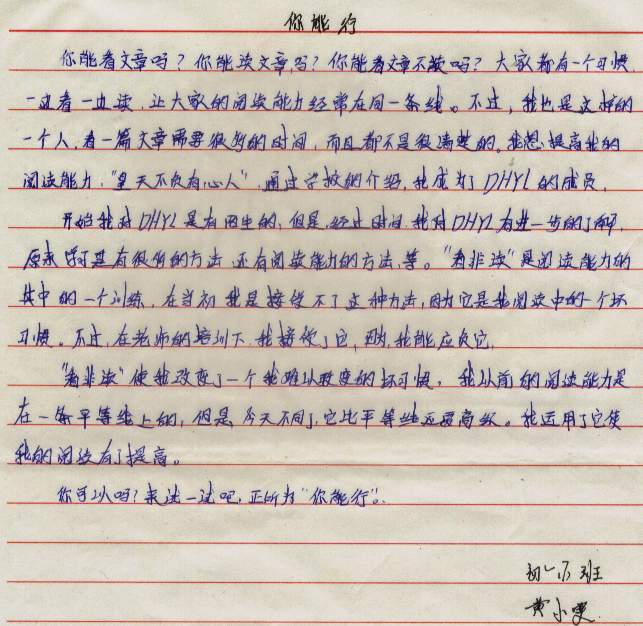 你能行
你能看文章吗？你能读文章吗？你能看文章不读吗？大家都有一个习惯，
一边看一边读，让大家的阅读能力经常在同一条线。不过，我也是这样的
一个人，看一篇文章需要很多的时间，而且都不是很清楚的。我想提高我的
阅读能力，"皇天不负有心人"，通过学校的介绍，我成为了DHYL的成员。
开始我对DHYL是有陌生的，但是，经过时间，我对DHYL有进一步的了解，
原来学习是有很多的方法，还有阅读能力的方法，等。"看非读"是阅读能力的
其中的一个训练，在当初我是接受不了这种方法，因为它是我阅读中的一个坏
习惯。不过，在老师的培训下，我接受了它，我能应负它。
"看非读"使我改变了一个我难以改变的坏习惯，我以前的阅读能力是
在一条平等线上的，但是，今天不同了，它比平等线还要高级。我运用了它使
我的阅读有了提高。
你可以吗？来试一试吧，正所为"你能行"。
班
黄小